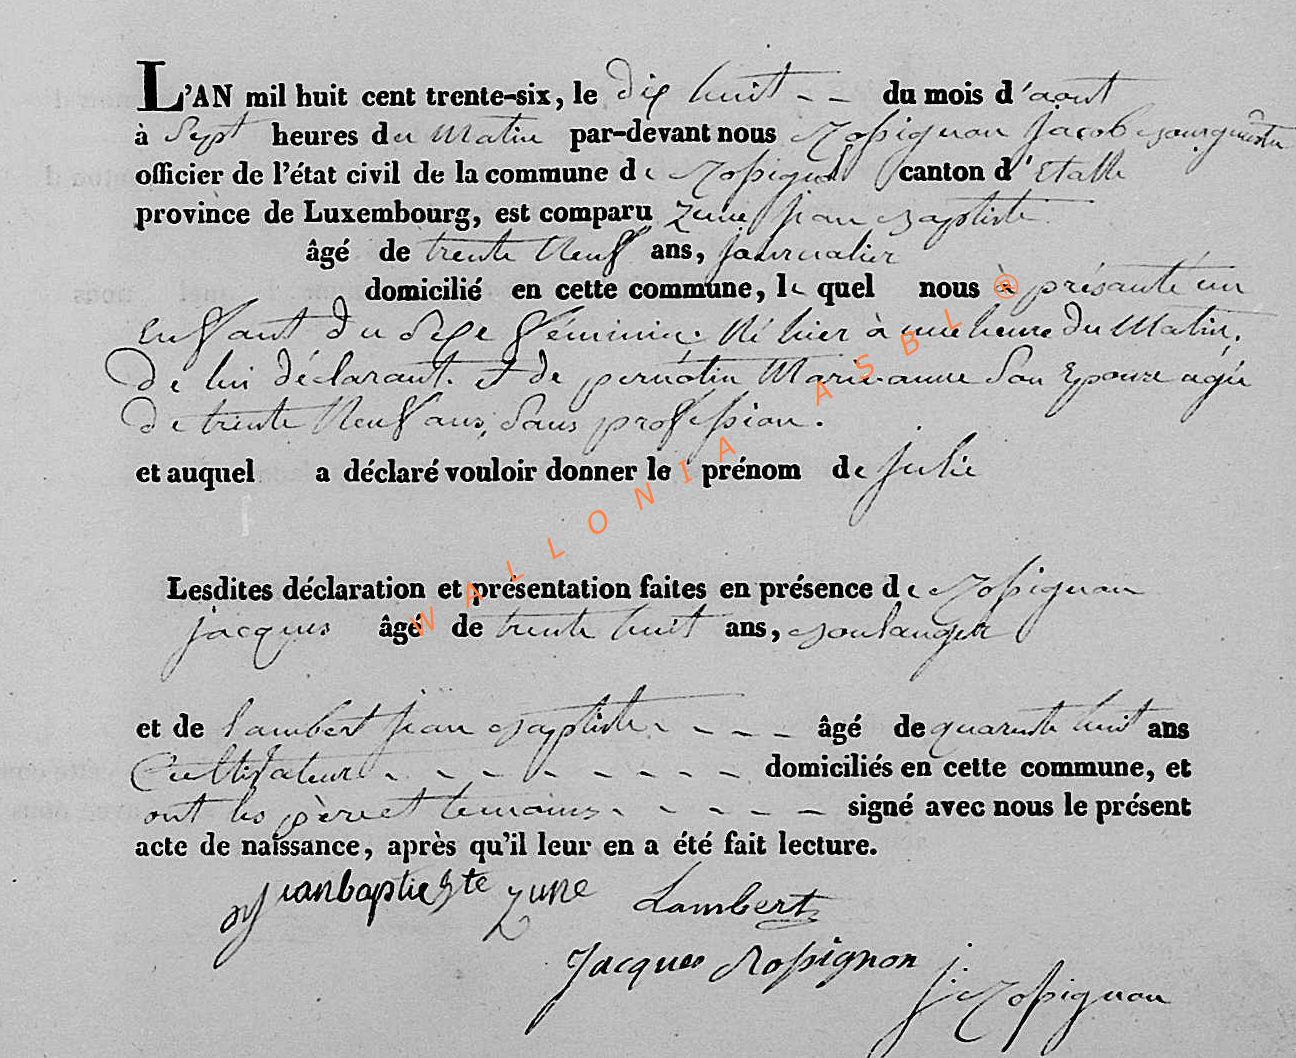 L'AN mil huit cent trente-six, le dix huit - - du mois d'aout
à Sept heures du Matin par-devant nous Rossignon Jacob Bourguemestre
officier de l'état civil de la commune de Rossignol canton d'Etalle
province de Luxembourg, est comparu Zune jean Baptiste
âgé de trente Neuf ans, journalier
domicilié en cette commune, le quel nous à présanté un
enfant du Sexe féminin. Né hier à une heure du Matin.
de lui déclarant. et de pernotin Marie-anne Son Epouse agée
de trente Neuf ans, Sans profession.
et auquel a déclaré vouloir donner le prénom de julie
Lesdites déclaration et présentation faites en présence de Rossignon
jacques âgé de trente huit ans, Boulanger
et de Lambert jean Baptiste - - - - âgé de quarente huit ans
Cultivateur - - - - - - - - domiciliés en cette commune, et
ont les père et temoins - - - - - signé avec nous le présent
acte de naissance, après qu'il leur en a été fait lecture.
jeanbaptieste zune Lambert
Jacques Rossignon
j: Rossignon
WALLONIA ASBL